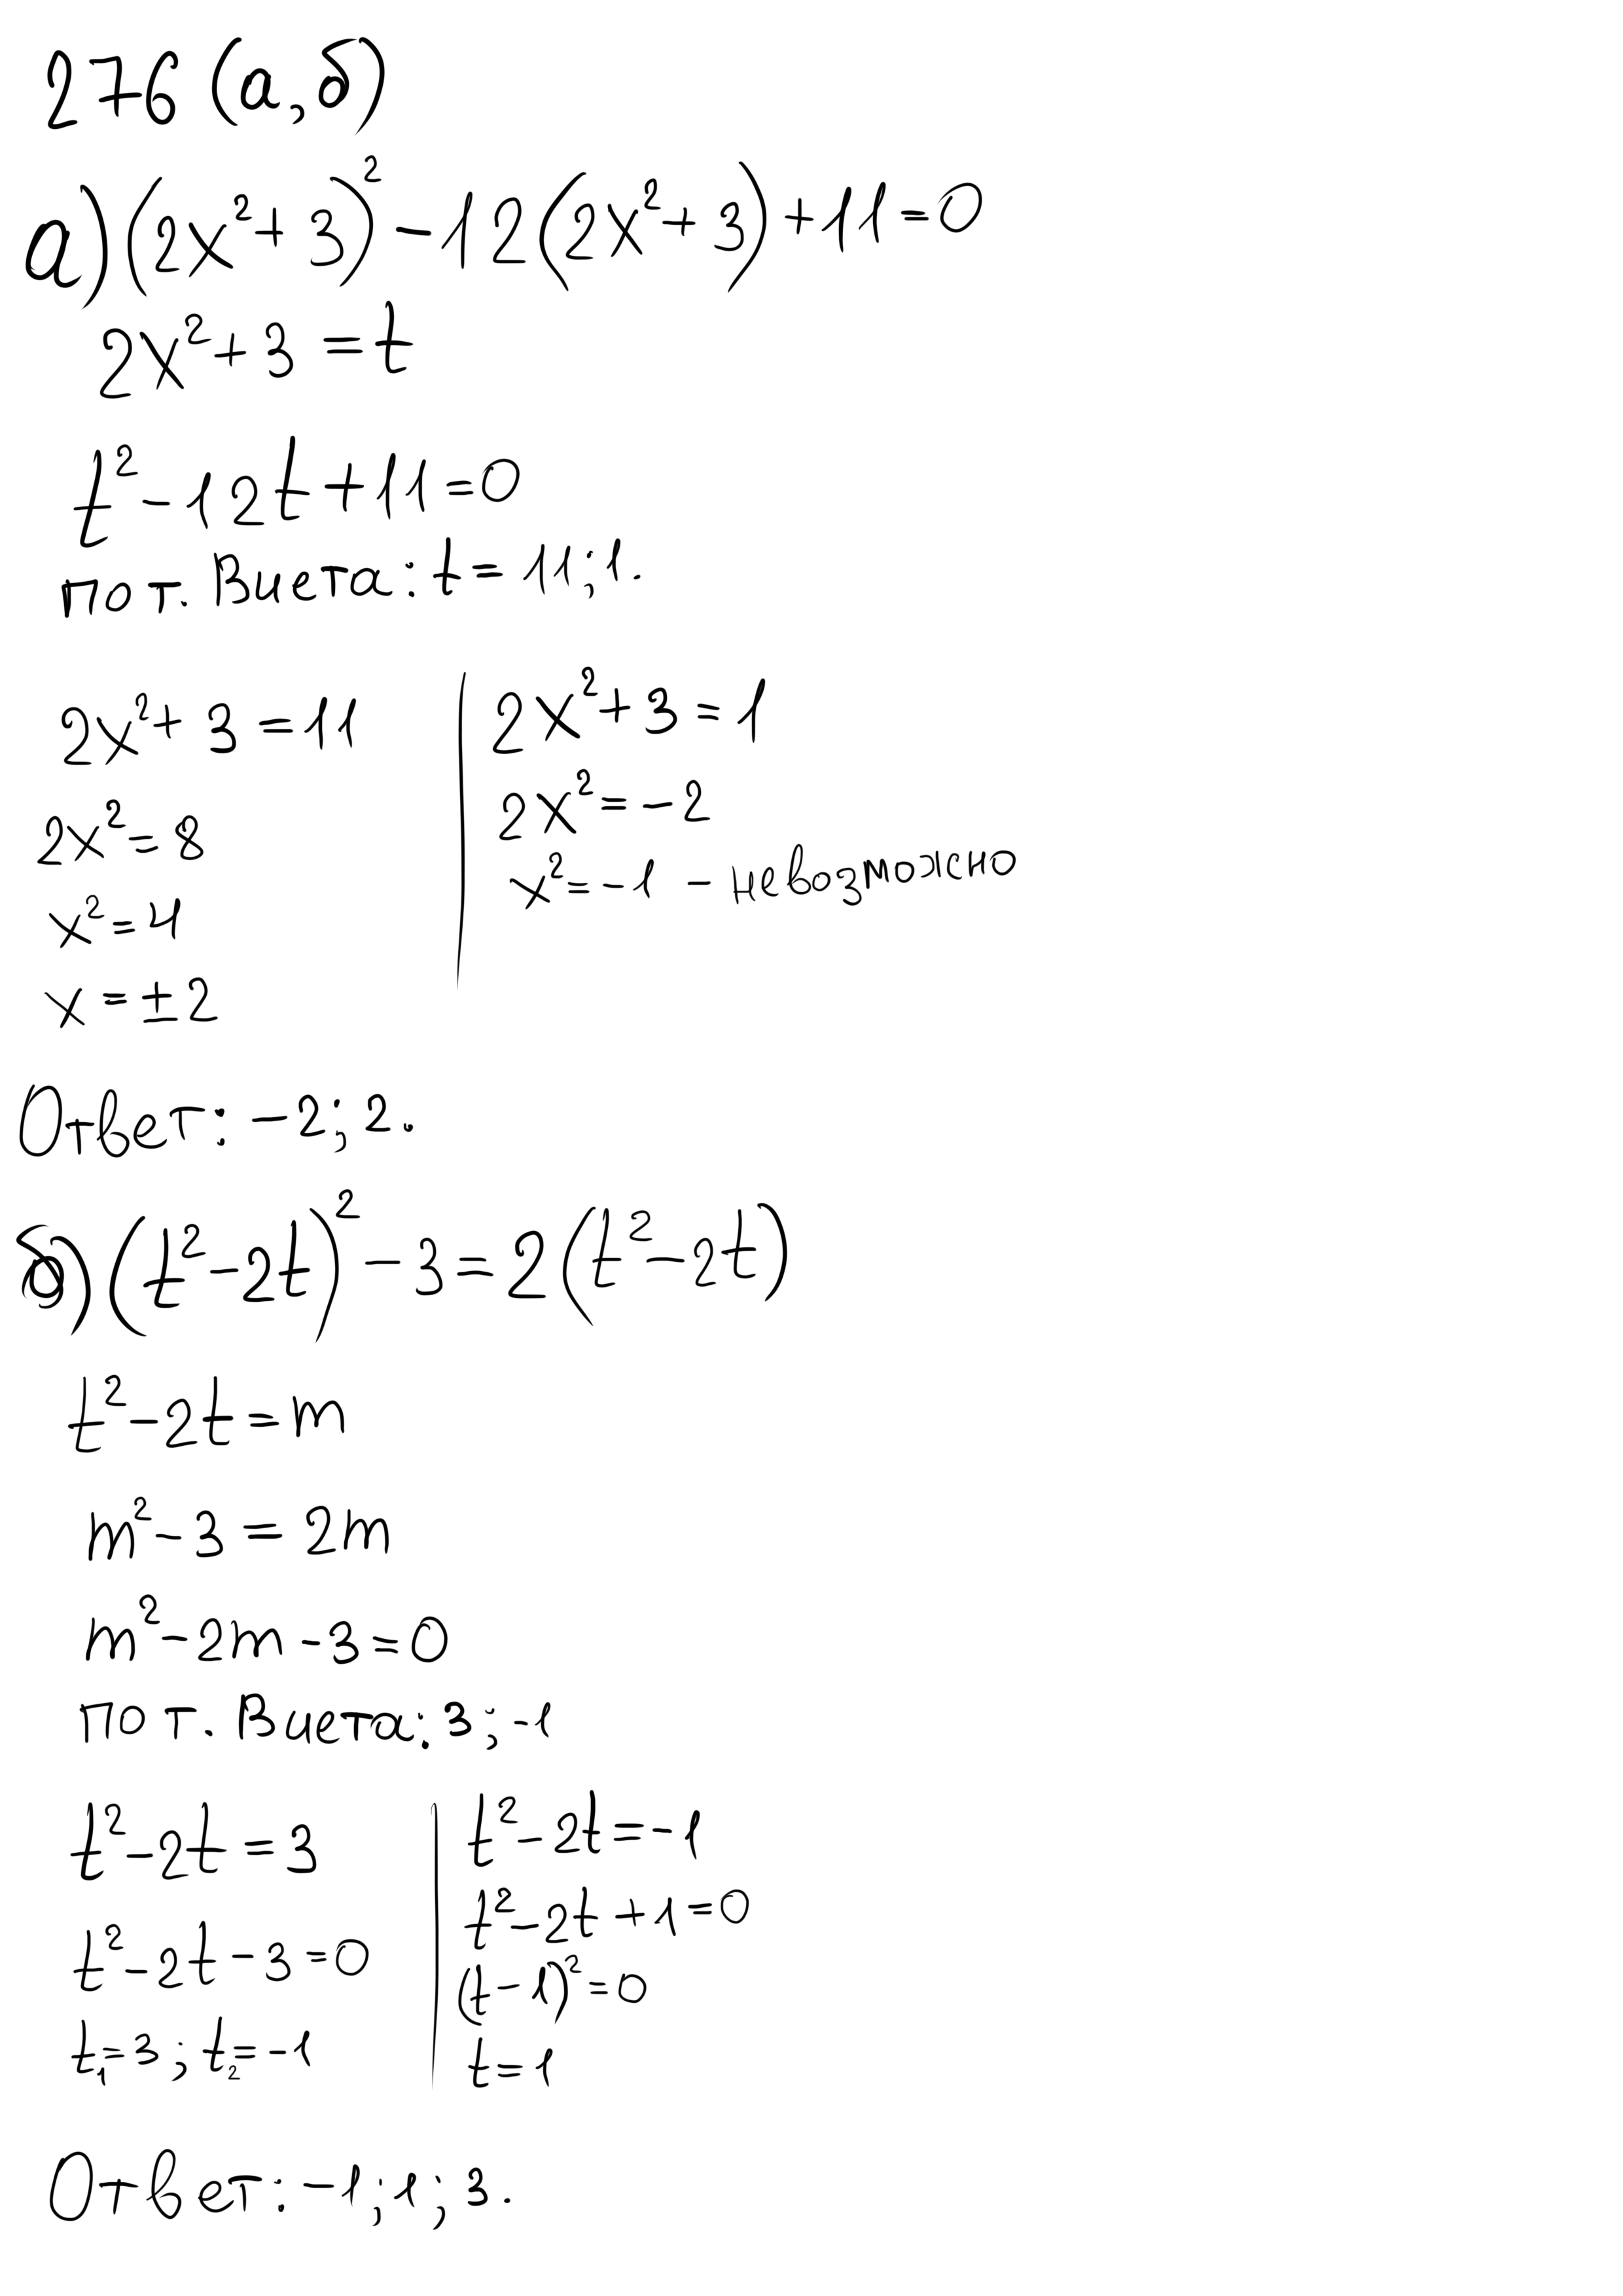 276 (а,б)
а) (2x²+3)² - 12(2x²+3)+11=0
2x²+3=t
t²-12t+11=0
по т. Виета: t=11;1.
2x²+3=11
2x²=8
x²=4
x=±2
2x²+3=1
2x²=-2
x²=-1 - невозможно
Ответ: -2; 2.
б) (t²-2t)²-3=2(t²-2t)
t²-2t=m
m²-3=2m
m²-2m-3=0
по т. Виета: 3;-1
t²-2t=3
t²-2t-3=0
t₁=3; t₂=-1
t²-2t=-1
t²-2t+1=0
(t-1)²=0
t=1
Ответ: -1;1;3.